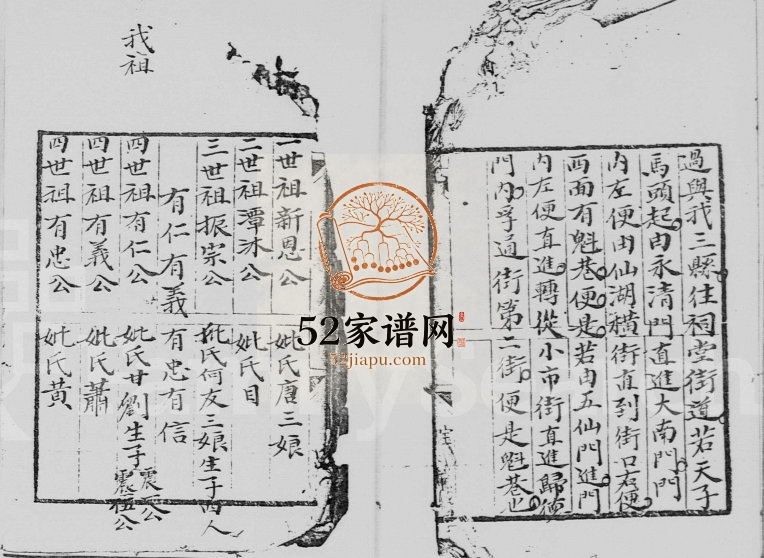 過與我三縣往祠堂街道若天子
馬頭起由永清門直進大南門門
內左便由仙湖橫街直到街口右便
西面有魁巷便是若由五仙門進門
內左便直進轉從小市街直進歸德
門內孚通街第二街便是魁巷也
我祖
一世祖新恩公 妣氏唐三娘
二世祖潭沐公 妣氏目
三世祖振宗公 妣氏何友三娘生子四人
有仁有義 有忠有信
四世祖有仁公 妣氏甘劉生子震 公 震伍公
四世祖有義公 妣氏蕭
四世祖有忠公 妣氏黃
52家谱网
52jiapu.com